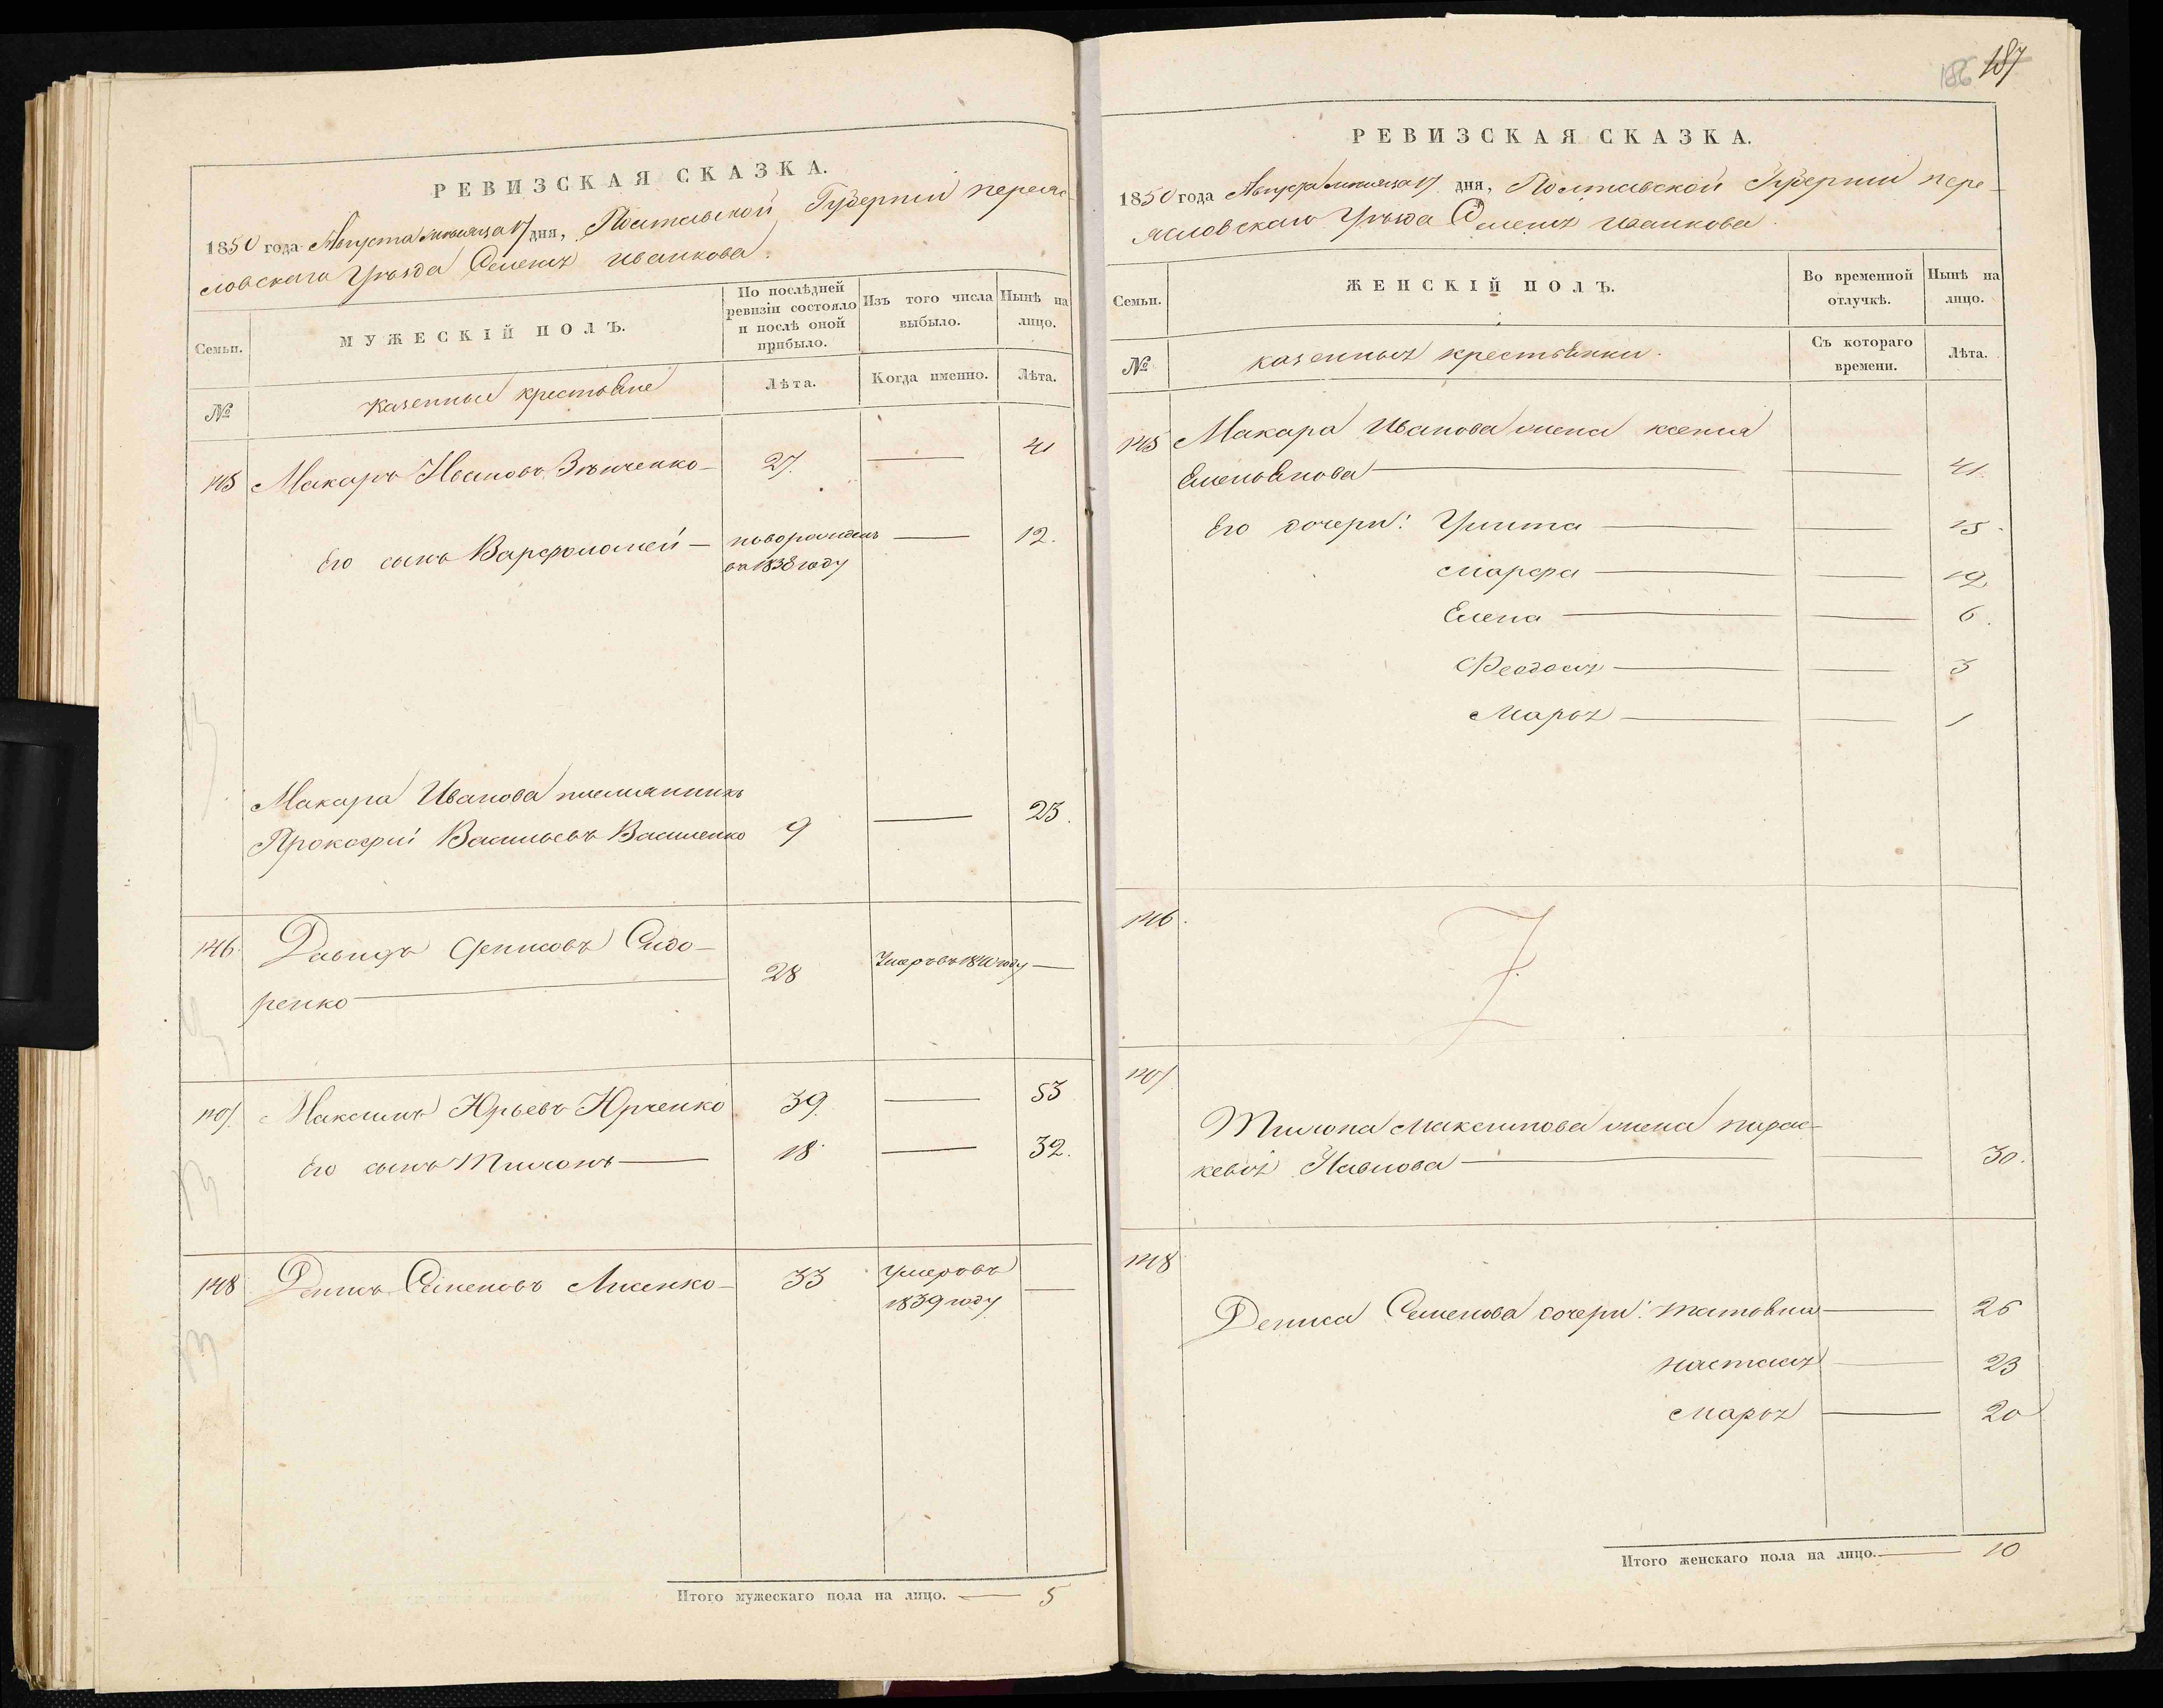 РЕВИЗСКАЯ СКАЗКА.
1850 года Августа месяца 17 дня, Полтавской Губернии переяс-
ловскаго Уезда Селенія Иванкова.
Семьи.
МУЖЕСКІЙ ПОЛЪ.
По послѣдней ревизіи состояло и послѣ оной прибыло.
Изъ того числа выбыло.
Нынѣ на лицо.
№
казенные крестьяне
Лѣта.
Когда именно.
Лѣта.
145 Макаръ Ивановъ Зѣнченко 27. — 41
Его сынъ Варфоломей — новорожденъ — 12.
въ 1838 году
Макара Иванова племянникъ
Прокофій Васильевъ Василенко 9 — 23.
146. Давидъ Денисовъ Сидо-
ренко — 28 Умеръ въ 1840 году —
147. Максимъ Юрьевъ Юрченко 39. — 53
Его сынъ Тимонъ — 18. — 32.
148 Денисъ Семеновъ Лисенко 33 Умеръ въ —
1839 году
Итого мужескаго пола на лицо. — 5
186 187
РЕВИЗСКАЯ СКАЗКА.
1850 года Августа месяца 17 дня, Полтавской Губерніи пере-
ясловскаго Уѣзда Селенія Иванкова.
Семьи.
ЖЕНСКІЙ ПОЛЪ.
Во временной отлучкѣ.
Нынѣ на лицо.
№
казенныя крестьянки.
Съ котораго времени.
Лѣта.
145 Макара Иванова жена ксенія
Емельянова — — 41.
Его дочери: Улита — — 15.
Марфа — — 12
Елена — — 6.
Феодосія — — 3
Марья — — 1
146.
147
Тимона Максимова жена парас-
кевія Павлова — — 30.
148
Дениса Семенова дочери: татьяна — 26
настасія — 23
Марья — 20
Итого женскаго пола на лицо. — 10